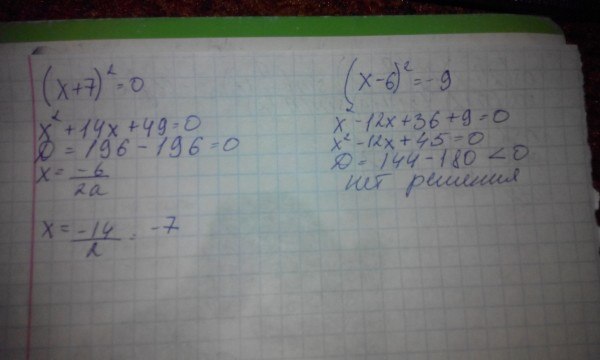 (x+7)² = 0
x² + 14x + 49 = 0
D = 196 - 196 = 0
x = -b/2a
x = -14/2 = -7
(x-6)² = -9
x² - 12x + 36 + 9 = 0
x² - 12x + 45 = 0
D = 144 - 180 < 0
нет решения